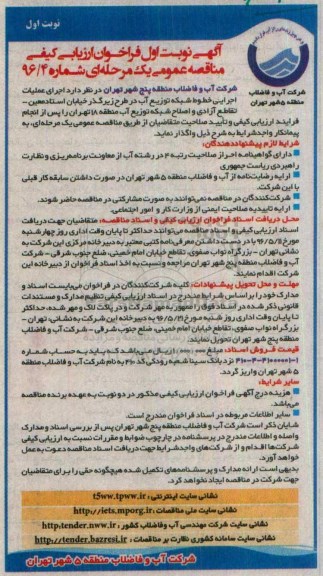 نوبت اول
آگهی نوبت اول فراخوان ارزیابی کیفی
مناقصه عمومی یک مرحله‌ای شماره ۹۶/۴
شرکت آب و فاضلاب
منطقه ۵ شهر تهران
شرکت آب و فاضلاب منطقه پنج شهر تهران در نظر دارد اجرای عملیات
اجرایی خطوط شبکه توزیع آب در طرح زیرگذر خیابان استاد معین -
تقاطع آزادی و اصلاح شبکه توزیع آب منطقه ۱۸ تهران را پس از انجام
فرایند ارزیابی کیفی و تأیید صلاحیت متقاضیان از طریق مناقصه عمومی یک مرحله‌ای، به
پیمانکار واجد شرایط به شرح ذیل واگذار نماید.
شرایط لازم پیشنهاددهندگان:
دارای گواهینامه احراز صلاحیت رتبه ۴ در رشته آب از معاونت برنامه‌ریزی و نظارت
راهبردی ریاست جمهوری
ارایه رضایت‌نامه از آب و فاضلاب منطقه ۵ شهر تهران در صورت داشتن سابقه کار قبلی
با این شرکت.
شرکت‌کنندگان در مناقصه نمی‌توانند به صورت مشارکتی در مناقصه حاضر شوند.
ارایه تاییدیه صلاحیت ایمنی از وزارت کار و امور اجتماعی.
محل دریافت اسناد فراخوان ارزیابی کیفی و اسناد مناقصه: متقاضیان جهت دریافت
اسناد ارزیابی کیفی و اسناد مناقصه می‌توانند حداکثر تا پایان وقت اداری روز چهارشنبه
مورخ ۹۶/۵/۱۱ با در دست داشتن معرفی‌نامه کتبی معتبر به دبیرخانه مرکزی این شرکت به
نشانی تهران - بزرگراه نواب صفوی، تقاطع خیابان امام خمینی، ضلع جنوب شرقی - شرکت
آب و فاضلاب منطقه پنج شهر تهران مراجعه و نسبت به اخذ اسناد فراخوان از دبیرخانه این
شرکت اقدام نمایند.
مهلت و محل تحویل پیشنهادات: کلیه شرکت‌کنندگان در فراخوان می‌بایست اسناد و
مدارک خود را بر اساس شرایط مندرج در اسناد ارزیابی کیفی تنظیم مدارک و مستندات
قانونی ذکر شده در اسناد فوق را ممهور به مهر شرکت و در پاکت لاک و مهر شده، حداکثر
تا پایان وقت اداری روز شنبه مورخ ۹۶/۵/۲۱ به دبیرخانه این شرکت به نشانی، تهران -
بزرگراه نواب صفوی، تقاطع خیابان امام خمینی، ضلع جنوب شرقی - شرکت آب و فاضلاب
منطقه پنج شهر تهران تحویل نمایند.
قیمت فروش اسناد: مبلغ ریال می‌باشد که باید به حساب شماره
نزد بانک سینا شعبه رودکی کد به نام شرکت آب و فاضلاب منطقه
۵ شهر تهران واریز گردد.
سایر شرایط:
هزینه درج آگهی فراخوان ارزیابی کیفی مذکور در دو نوبت به عهده برنده مناقصه
می‌باشد.
سایر اطلاعات مربوطه در اسناد فراخوان مندرج است.
شایان ذکر است شرکت آب و فاضلاب منطقه پنج شهر تهران پس از بررسی اسناد و مدارک
واصله و اطلاعات مندرج در پرسشنامه در چارچوب ضوابط و مقررات نسبت به ارزیابی کیفی
شرکت‌ها اقدام و از شرکت‌های واجد شرایط جهت دریافت اسناد مناقصه دعوت به عمل
خواهد آورد.
بدیهی است ارائه مدارک و پرسشنامه‌های تکمیل شده هیچگونه حقی را برای متقاضیان
جهت شرکت در مناقصه ایجاد نخواهد کرد.
نشانی سایت اینترنتی : t5ww.tpww.ir
نشانی سایت ملی مناقصات : http://iets.mporg.ir
نشانی سایت شرکت مهندسی آب وفاضلاب کشور : http:tender.nww.ir
نشانی سایت سامانه کشوری نظارت بر مناقصات : http://tender.bazresi.ir
شرکت آب و فاضلاب منطقه ۵ شهر تهران